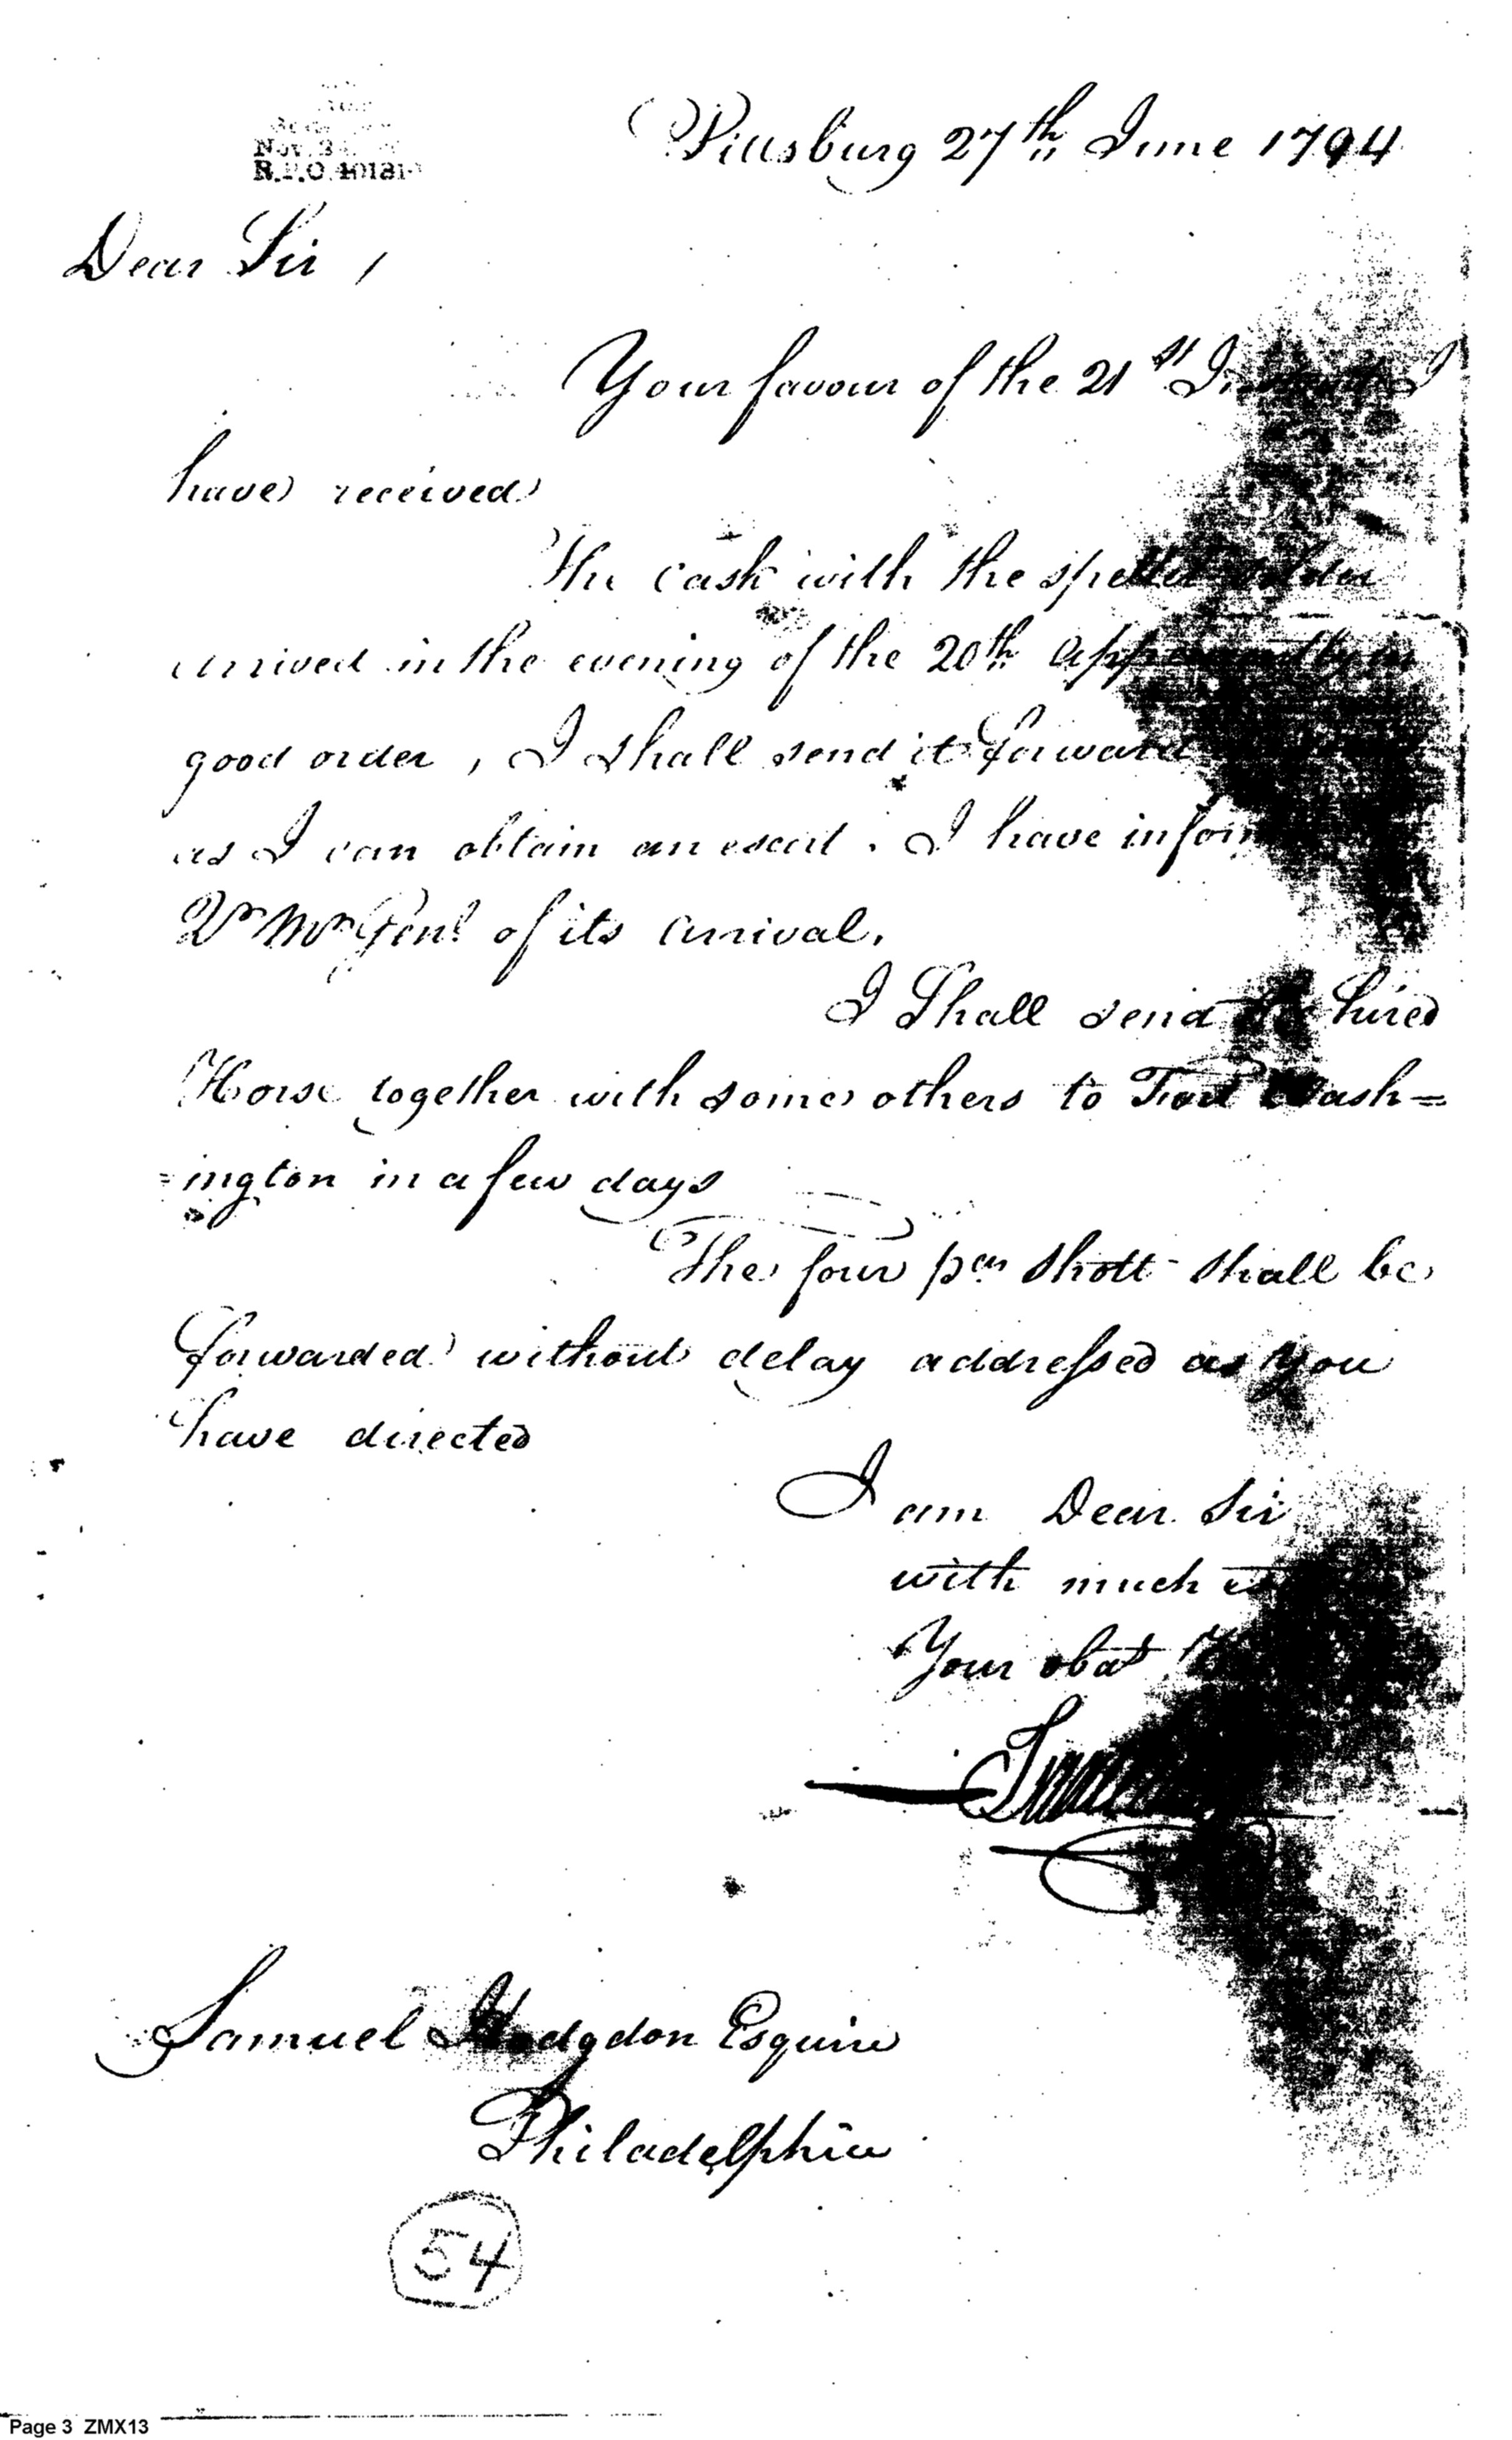 Nov. 3
R.P.O. 40131
Pittsburg 27th June 1794
Dear Sir,
Your favour of the 21st I
have received
The cask with the spelter solder
arrived in the evening of the 20th apparently in
good order, I shall send it forward
as I can obtain an escort. I have
Qr Mr Genl of its arrival.
I Shall send the hired
Horse together with some others to Fort Wash=
=ington in a few days
The four pdr Shott shall be
forwarded without delay addressed as you
have directed
I am Dear Sir
with much
Your obdt
Samuel Hodgdon Esquire
Philadelphia
54
Page 3 ZMX13